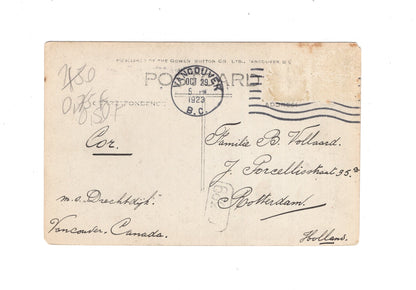 PUBLISHED BY THE GOWEN SUTTON CO. LTD., VANCOUVER, B.C.
POST CARD
CORRESPONDENCE
ADDRESS
VANCOUVER
OCT 29
5 PM
1923
B.C.
Cor.
m.s. Drechtdijk.
Vancouver, Canada.
Familie B. Vollaard.
J. Porcellisstraat 35.a
Rotterdam.
Holland.